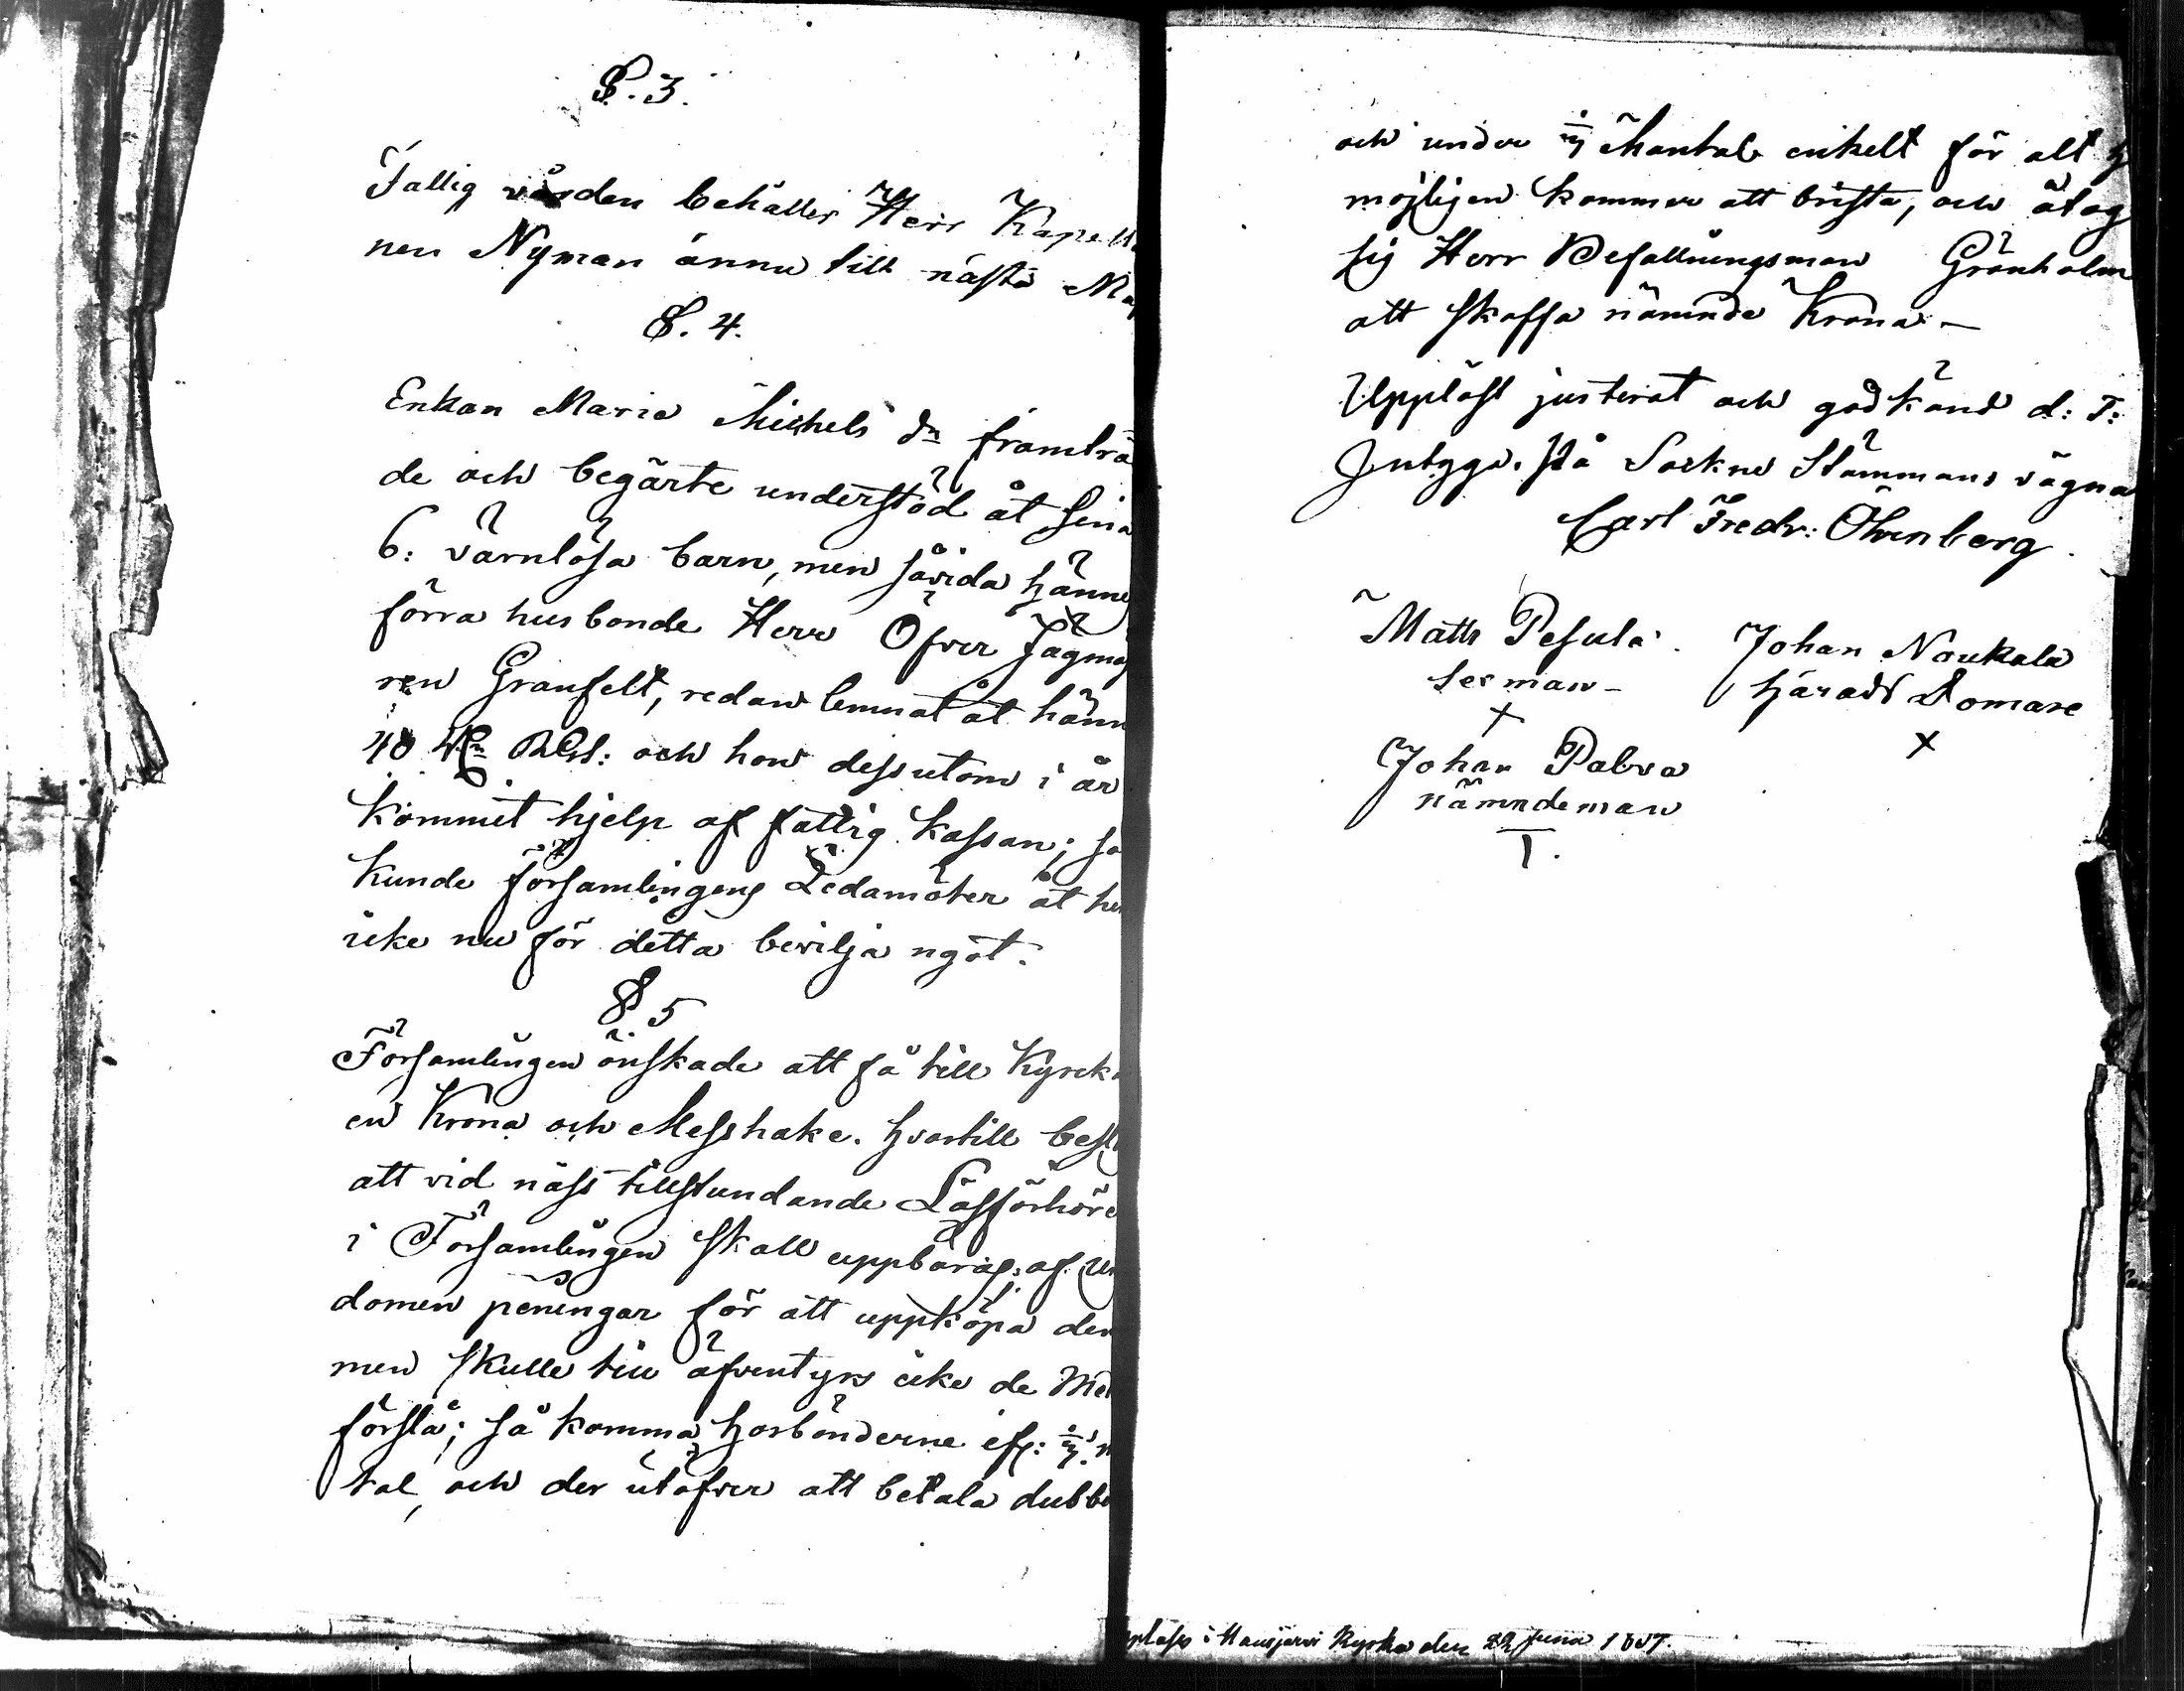 §. 3.
Fattig vården behåller Herr Kapell
nen Nyman ännu till nästa Maj
§. 4.
Enkan Maria Michels dr framträd
de och begärte understöd åt sina
6: värnlösa barn, men såvida hänne
förra husbonde Herr Öfver Jägmäs
ren Granfelt, redan lemnat åt hänn
och hon dessutom i år
kommit hjelp af fattig kassan; så
kunde församlingens Ledamöter åt hen
icke nu för detta bevilja något.
§. 5
Församlingen önskade att få till Kyrka
en Krona och Messhake. hvartill besl
att vid näst tillstundande Läsförhöre
i Församlingen skall uppbäras, af un
domen peningar för att uppköpa den
men skulle till äfventyrs icke de Med
förslå; så komma husbönderne
tal, och der utöfver att betala dubbe
och under Mantal enkelt för alt
möjligen kommer att brista, och åtog
sig Herr Befallningsman Grönholm
att skaffa nämnde Krona. —
Uppläst justerat och godkänd d: T:
Intygar. På Sockne Stämmans vägna
Carl Fredr: Öhrnberg.
Matts Pesula. Johan Noukala
sexman – härads Domare
X X
Johan Palva
nämndeman
T.
upläses i Hausjärvi Kyrka den 22 juni